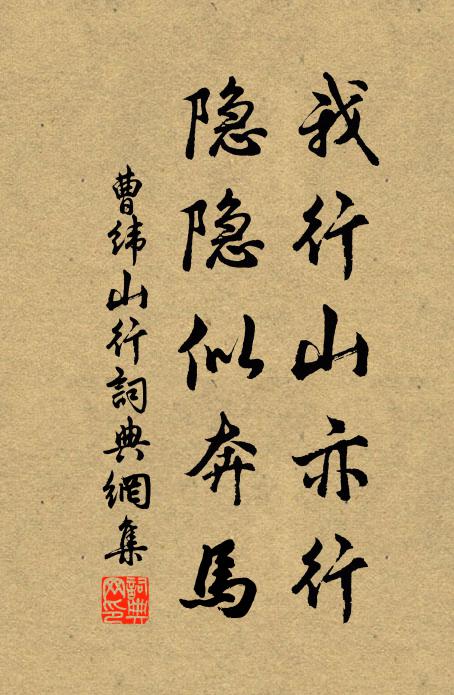 我行山亦行
隐隐似奔馬
曹緯山行詞典網集
詞典网印